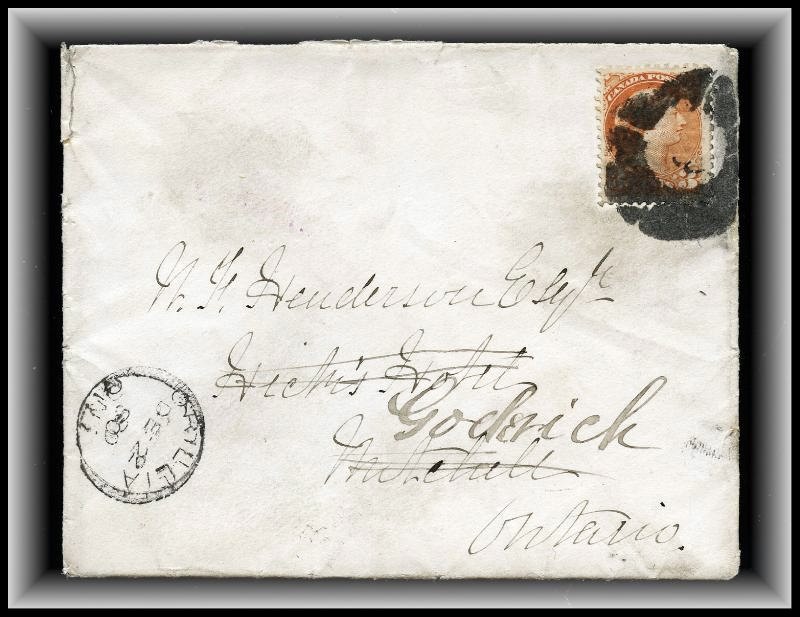 CANADA POS
3
W. H. Henderson Esqre
Hicks's Hotel
Goderich
Mitchell
Ontario.
ORILLIA ONT
DE
80